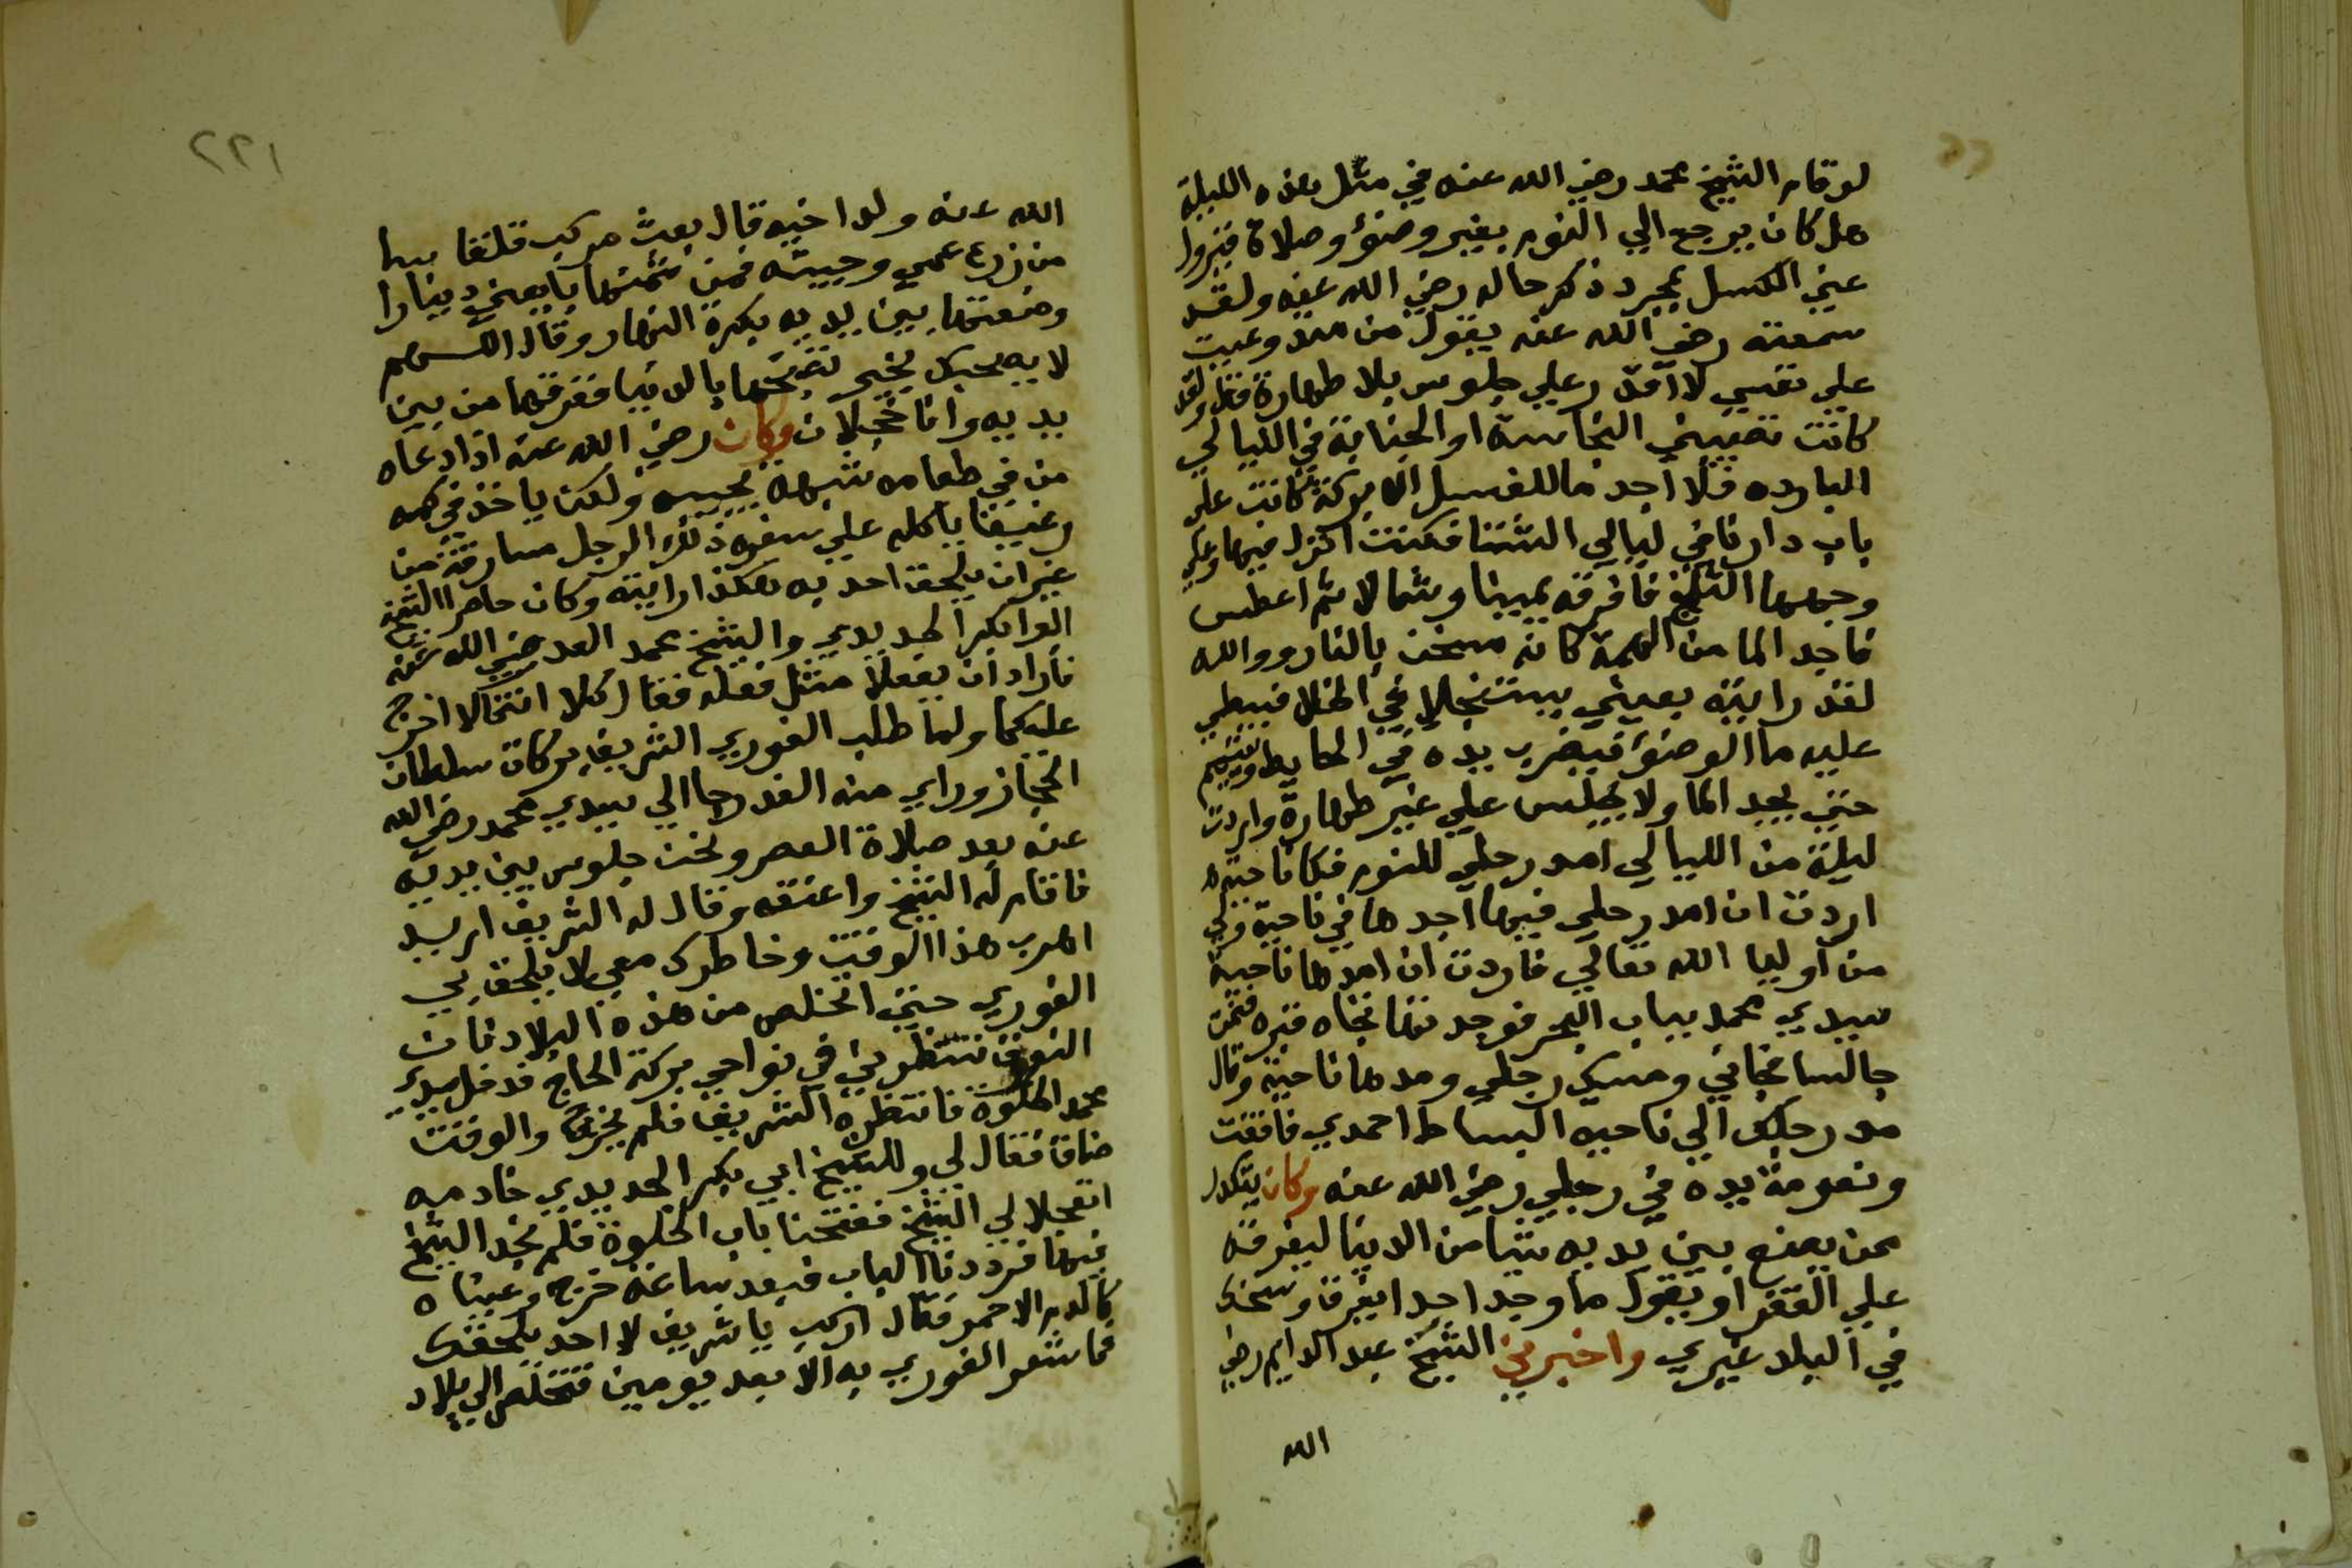 لو قام الشيخ محمد رضي الله عنه في مثل هذه الليلة
هل كان يرجع الي النوم بغير وضوء وصلاة فيزول
عني الكسل بمجرد ذكر حاله رضي الله عنه ولقد
سمعته رضي الله عنه يقول من منذ وعيت
علي نفسي لا اقدر علي جلوس بلا طهارة قط ولقد
كانت تصيبني النجاسة او الجنابة في الليالي
البارده فلا اجد ما للغسل الا بركة كانت علي
باب دارنا في ليالي الشتا فكنت انزل فيها وعلي
وجهها الثلج فافرقه يمينا وشمالا ثم اغطس
فاجد الما من الهمة كانه مسخن بالنار ووالله
لقد رايته بعيني يستنجلا في الخلا فيبطي
عليه ما الوضوء فيضرب يده في الحايط ويتيمم
حتي يجد الما ولا يجلس علي غير طهارة واردت
ليلة من الليالي امد رجلي للنوم فكل ناحية
اردت ان امد رجلي فيها اجدها في ناحية ولي
من اوليا الله تعالي فاردت ان امدها ناحية
سيدي محمد بباب البحر فوجدتها تجاه قبره فنمت
جالسا فجاني ومسك رجلي ومدها ناحيته وقال
مد رجلك الي ناحيه البساط احمدي فافقت
ونعومة يده في رجلي رضي الله عنه وكان يتكدر
ممن يضع بين يديه شيا من الدنيا ليفرقه
علي الفقرا ويقول ما وجد احدا يفرق وسخك
في البلد غيري واخبرني الشيخ عبد الدايم رضي
الله
٢٢١
الله عنه ولد اخيه قال بعث مركب قلقا سها
من زرع عمي وجيته فمن ثمنها باربعين دينارا
وضعتها بين يديه بكرة النهار وقال اللهم
لا يصبحك بخير تصبحها بالدنيا ففرقها من بين
يديه وانا خجلان وكان رضي الله عنه اذا دعاه
من في طعامه شبهة يجيبه ولكن ياخذ في كمه
رغيفا ياكله علي سفرة ذلك الرجل مسارقة من
غير ان يلحق احد به هكذا رايته وكان حاضرا الشيخ
ابوا بكر الحديدي والشيخ محمد العدل رضي الله عنه
فارادا ان يفعلا مثل فعله فقال كلا انتما لا حرج
عليكما ولما طلب الغوري الشريف بركات سلطان
الحجاز وراي منه الغدر جا الي سيدي محمد رضي الله
عنه بعد صلاة العصر ونحن جلوس بين يديه
فاقام له الشيخ واعتنقه وقال له الشريف اريد
اهرب هذا الوقت وخاطرك معي لا يلحق بي
الغوري حتي اتخلص من هذه البلاد فان
النوق تنتظرني في نواحي بركة الحاج فدخل سيدي
محمد الخلوة فانتظره الشريف فلم يخرج والوقت
ضاق فقال لي وللشيخ ابي بكر الحديدي خادمه
اتعجلا لي الشيخ ففتحنا باب الخلوة فلم نجد الشيخ
فيها فرددنا الباب فبعد ساعة خرج وعيناه
كالدم الاحمر فقال اركب يا شريف لا احد يلحقك
فما شعر الغوري به الا بعد يومين فتخلص الي بلاد